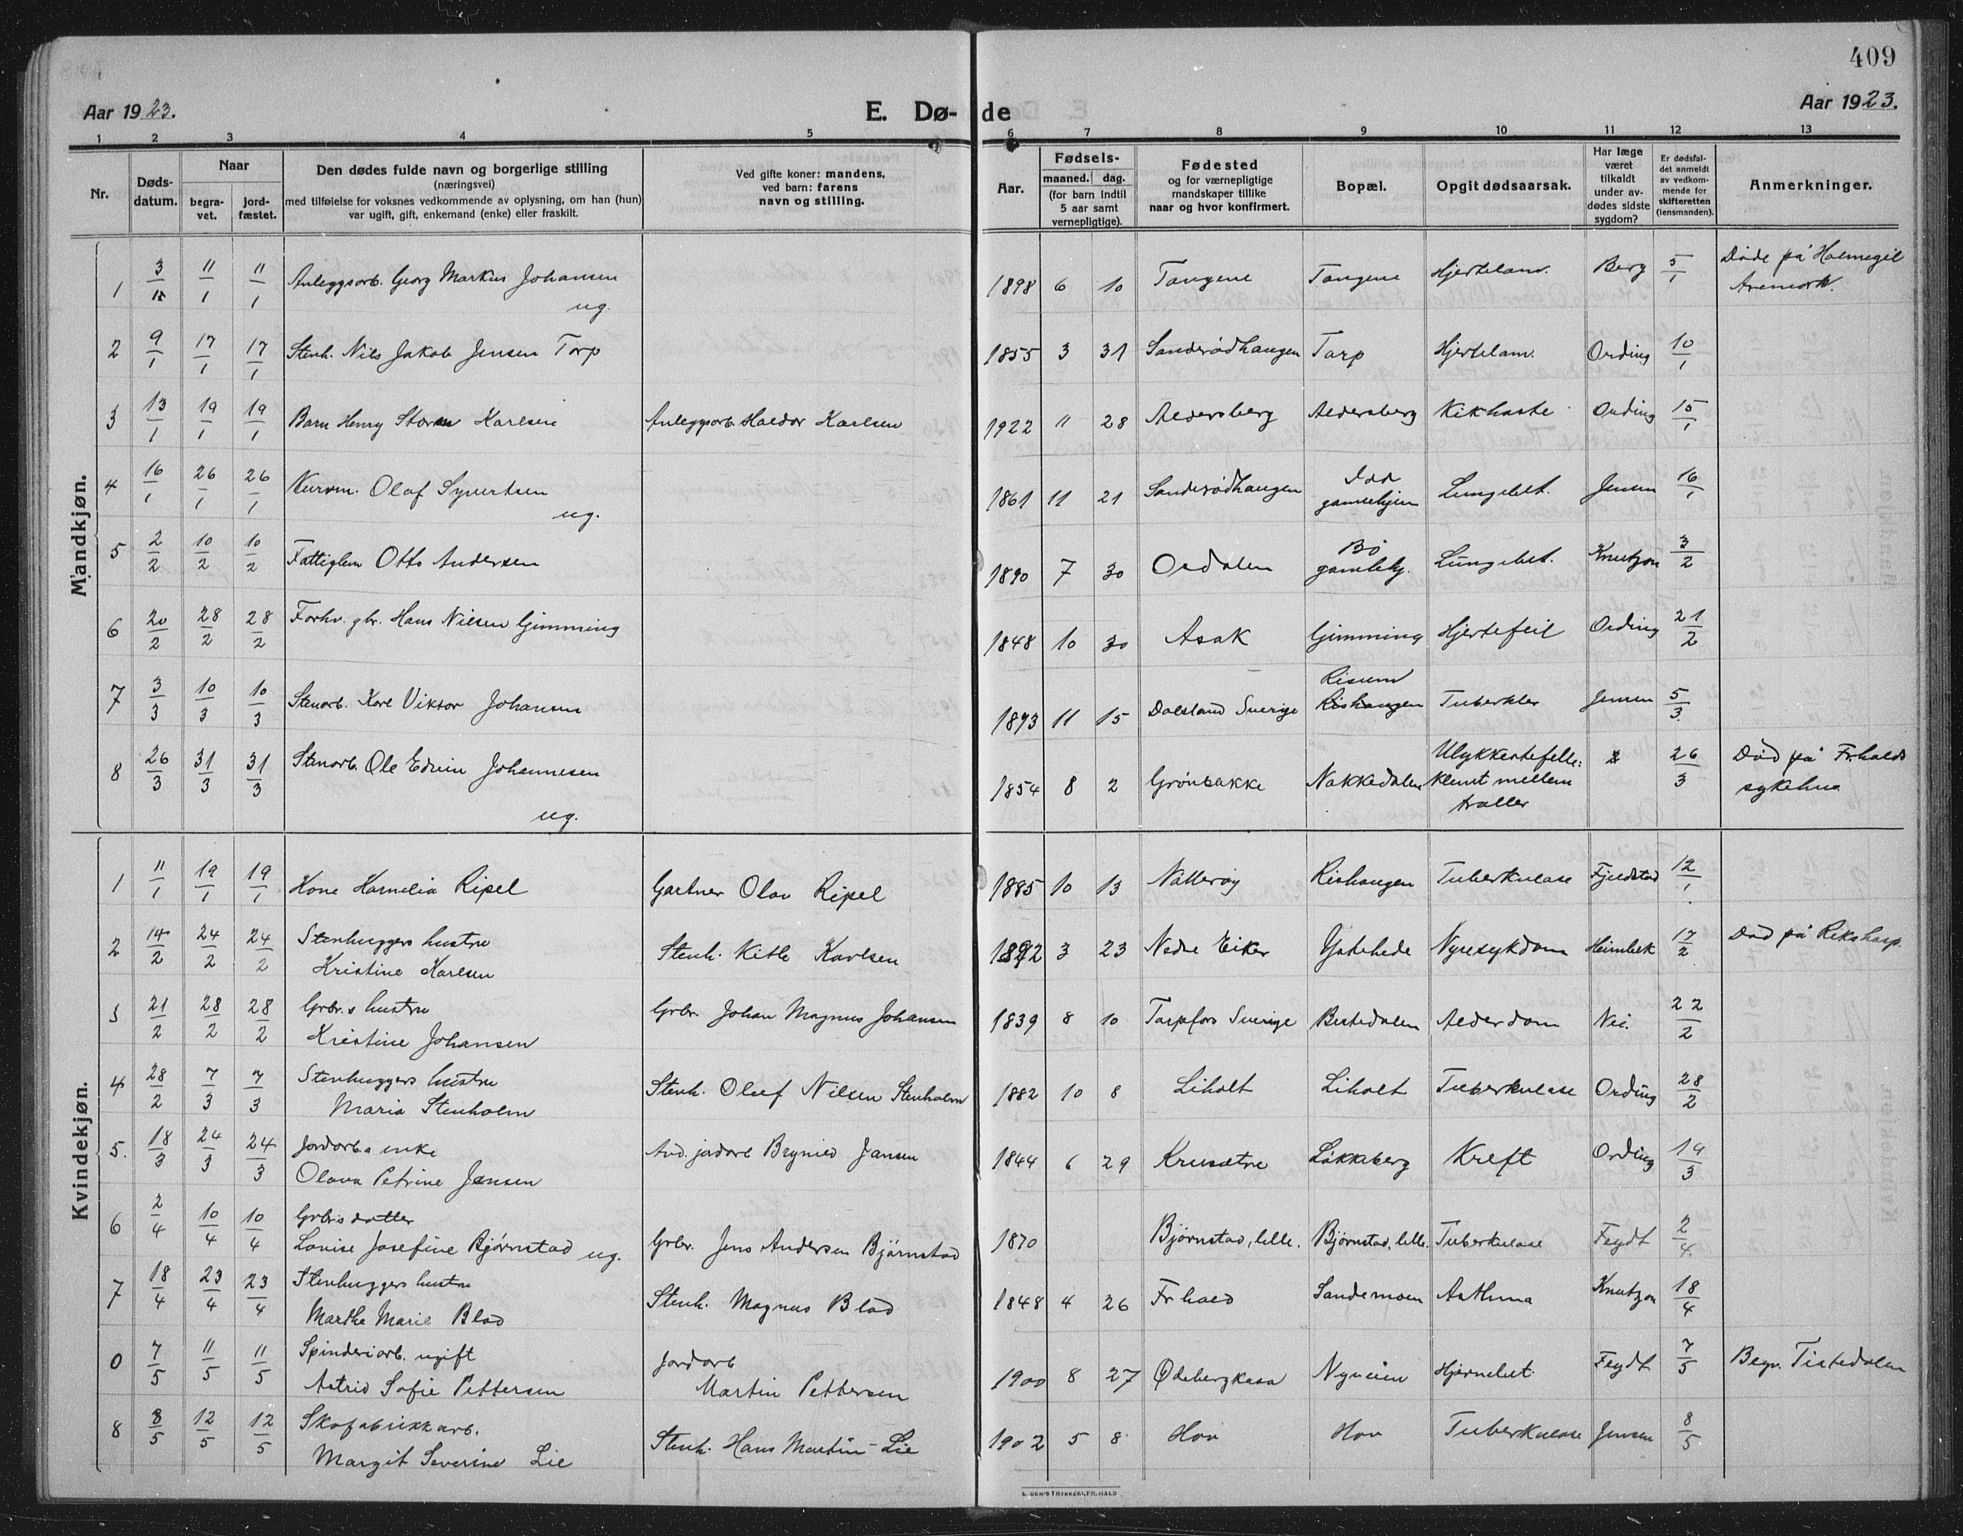 409
Aar 1923.
E. Dø-de
Aar 1923.
1 2 3 4 5 6 7 8 9 10 11 12 13
Nr.
Døds-
datum.
Naar
begra-
vet.
jord-
fæstet.
Den dødes fulde navn og borgerlige stilling
(næringsvei)
med tilføielse for voksnes vedkommende av oplysning, om han (hun)
var ugift, gift, enkemand (enke) eller fraskilt.
Ved gifte koner: mandens,
ved barn: farens
navn og stilling.
Aar.
Fødsels-
maaned. dag.
(for barn indtil
5 aar samt
vernepligtige).
Fødested
og for værnepligtige
mandskaper tillike
naar og hvor konfirmert.
Bopæl.
Opgit dødsaarsak.
Har læge
været
tilkaldt
under av-
dødes sidste
sygdom?
Er dødsfal-
det anmeldt
av vedkom-
mende for
skifteretten
(lensmanden).
Anmerkninger.
Mandkjøn.
1 3/1 11/1 11/1 Anleggsarb. Georg Markus Johansen ug. 1898 6 10 Tangene Tangene Hjertelam. Berg 5/1 Døde på Holmegil Aremark.
2 9/1 17/1 17/1 Stenh. Nils Jakob Jensen Torp 1855 3 31 Sanderødhaugen Torp Hjertelam. Ording 10/1
3 13/1 19/1 19/1 Barn Henry Karlsen Anleggsarb. Haldor Karlsen 1922 11 28 Aldersberg Aldersberg Kikhoste Ording 15/1
4 16/1 26/1 26/1 Olaf Syvertsen ug. 1861 11 21 Sanderødhaugen Idd gamlehjem Lungebet. Jensen 16/1
5 2/2 10/2 10/2 Fattiglem Otto Andersen 1890 7 30 Ordalen Bø gamlehj. Lungebet. Knutzon 3/2
6 20/2 28/2 28/2 Forhv. gbr. Hans Nilsen Gimming 1848 10 30 Asak Gimming Hjertefeil Ording 21/2
7 3/3 10/3 10/3 Stenarb. Karl Viktor Johansen 1893 11 15 Dalsland Sverige Risum Rishaugen Tuberklos Jensen 5/3
8 26/3 31/3 31/3 Stenarb. Ole Edvin Johannesen ug. 1854 8 2 Grønbakke Nakkedalen Ulykkestefelle: klemt mellem traller 26/3 Død på Fr.halds sykehus
Kvindekjøn.
1 11/1 19/1 19/1 Kone Kornelia Ripel Gartner Olav Ripel 1885 10 13 Nøtterøy Rishaugen Tuberkulose Fjeldstad 12/1
2 14/2 24/2 24/2 Stenhuggers hustru Kristine Karlsen Stenh. Kitle Karlsen 1892 3 23 Nedre Eiker Ystehede Nyresykdom Heimbek 17/2 Død på Rikshosp.
3 21/2 28/2 28/2 Grbr.s hustru Kristine Johansen Grbr. Johan Magnus Johansen 1839 8 10 Torpfors Sverige Bestedalen Alderdom Nei. 22/2
4 28/2 7/3 7/3 Stenhuggers hustru Maria Stenholm Stenh. Oluf Nilsen Stenholm 1882 10 8 Liholt Liholt Tuberkulose Ording 28/2
5. 18/3 24/3 24/3 Jordarb.s enke Olava Petrine Jensen And. jordarb Brynild Jansen 1844 6 29 Krusætre Løkkeberg Kreft Ording 19/3
6 2/4 10/4 10/4 Grbr.s datter Lovise Josefine Bjørnstad ug. Grbr. Jens Andersen Bjørnstad 1870 Bjørnstad, lille. Bjørnstad, lille. Tuberkulose Feydt 2/4
7 18/4 23/4 23/4 Stenhuggers hustru Marthe Marie Blad Stenh. Magnus Blad 1848 4 26 Fr.hald Sandemoen Asthma Knutzon 18/4
0 7/5 11/5 11/5 Spinderiarb. ugift Astrid Sofie Pettersen Jordarb Martin Pettersen 1900 8 27 Ødebergkasa Nyveien Hjernebet Feydt 7/5 Begr. Tistedalen
8 8/5 12/5 12/5 Skofabrikkarb. Margit Severine Lie Stenh. Hans Martin Lie 1902 5 8 Hov Hov Tuberkulose Jensen 8/5
TRYKKERI, FR. HALD